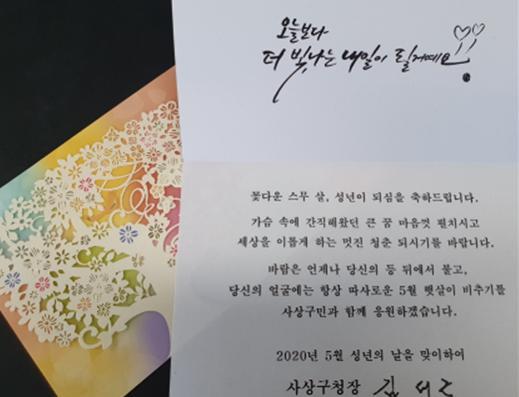 오늘보다
더 빛나는 내일이 될거예요!!
꽃다운 스무 살, 성년이 되심을 축하드립니다.
가슴 속에 간직해왔던 큰 꿈 마음껏 펼치시고
세상을 이롭게 하는 멋진 청춘 되시기를 바랍니다.
바람은 언제나 당신의 등 뒤에서 불고,
당신의 얼굴에는 항상 따사로운 5월 햇살이 비추기를
사상구민과 함께 응원하겠습니다.
2020년 5월 성년의 날을 맞이하여
사상구청장 김